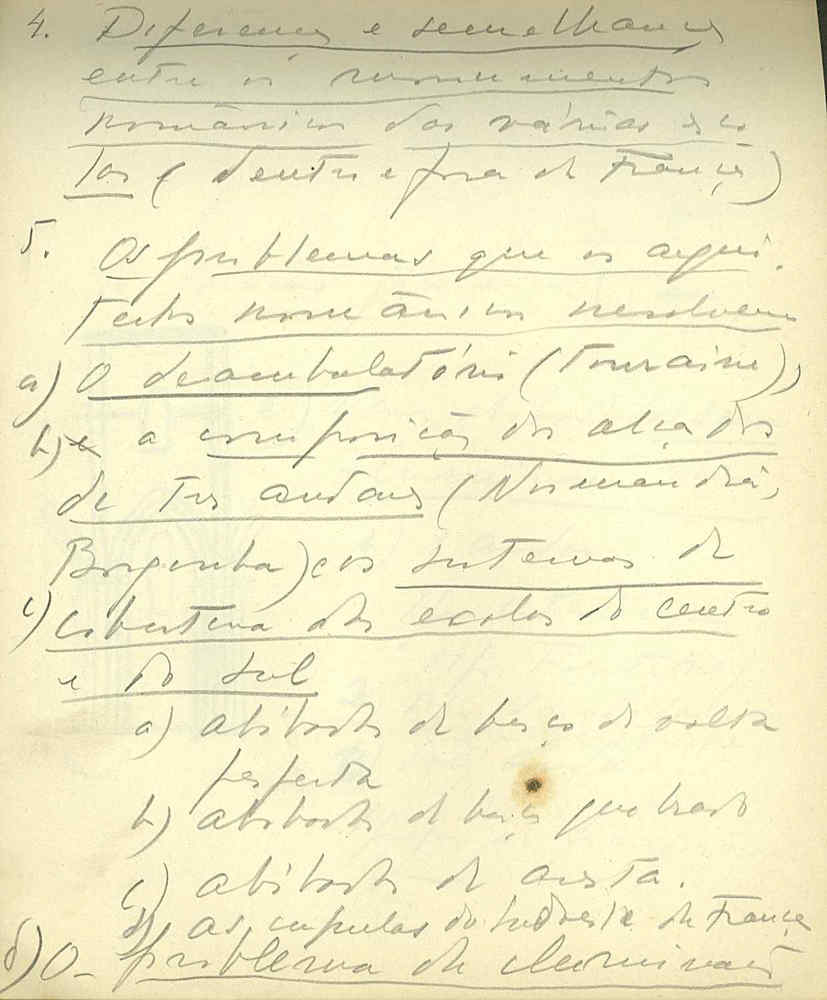 4. Diferenças e semelhanças
entre os monumentos
românicos das várias esco
las (dentro e fora de França)
5. Os problemas que os arqui-
tectos românicos resolvem
a) O deambulatório (Touraine),
b) e a composição dos alçados
de tres andares (Normandia,
Borgonha) e os sistemas de
c) cobertura das escolas do centro
e do sul
a) abóbada de berço de volta
perfeita
b) abóbada de berço quebrado
c) abóbada de aresta.
d) as cupulas do sudoeste de França
d) O problema de iluminação